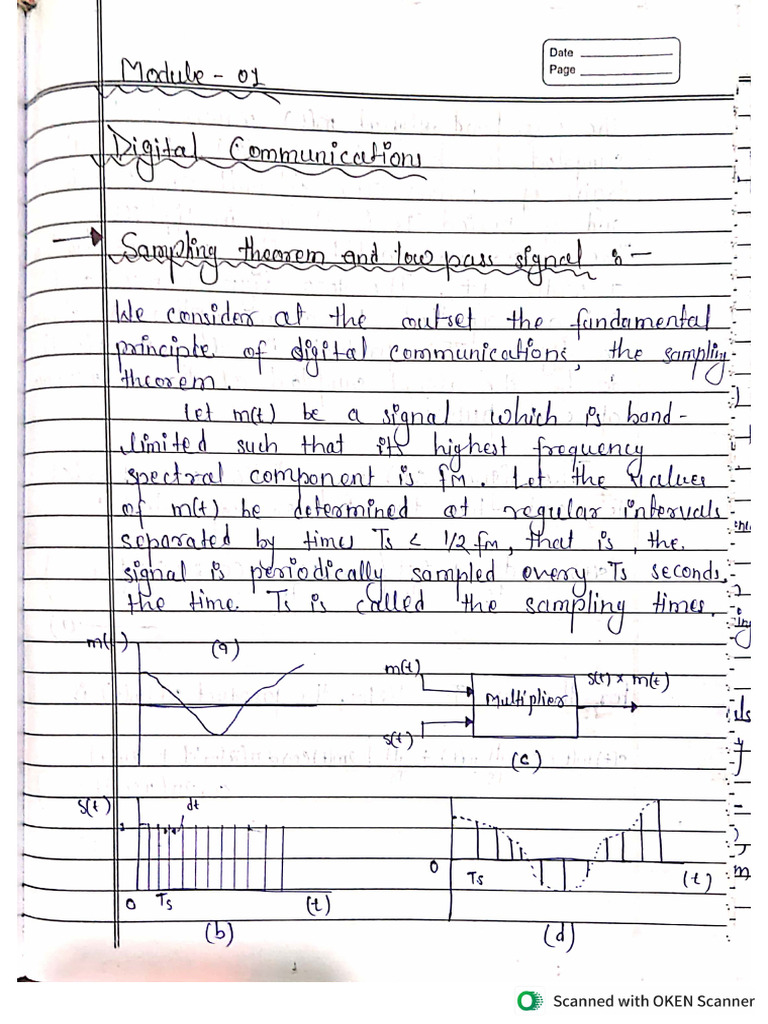 Date
Page
Module - 01
Digital Communications
Sampling theorem and low pass signal :-
We consider at the outset the fundamental
principle of digital communications, the sampling
theorem.
Let m(t) be a signal which is band-
limited such that its highest frequency
spectral component is fM. Let the values
of m(t) be determined at regular intervals
separated by times Ts < 1/2 fM, that is, the
signal is periodically sampled every Ts seconds,
the time Ts is called the sampling times.
(a)
m(t)
m(t)
Multiplier
S(t) × m(t)
S(t)
(c)
S(t)
dt
1
0
Ts
(t)
(b)
0
Ts
(t)
(d)
Scanned with OKEN Scanner